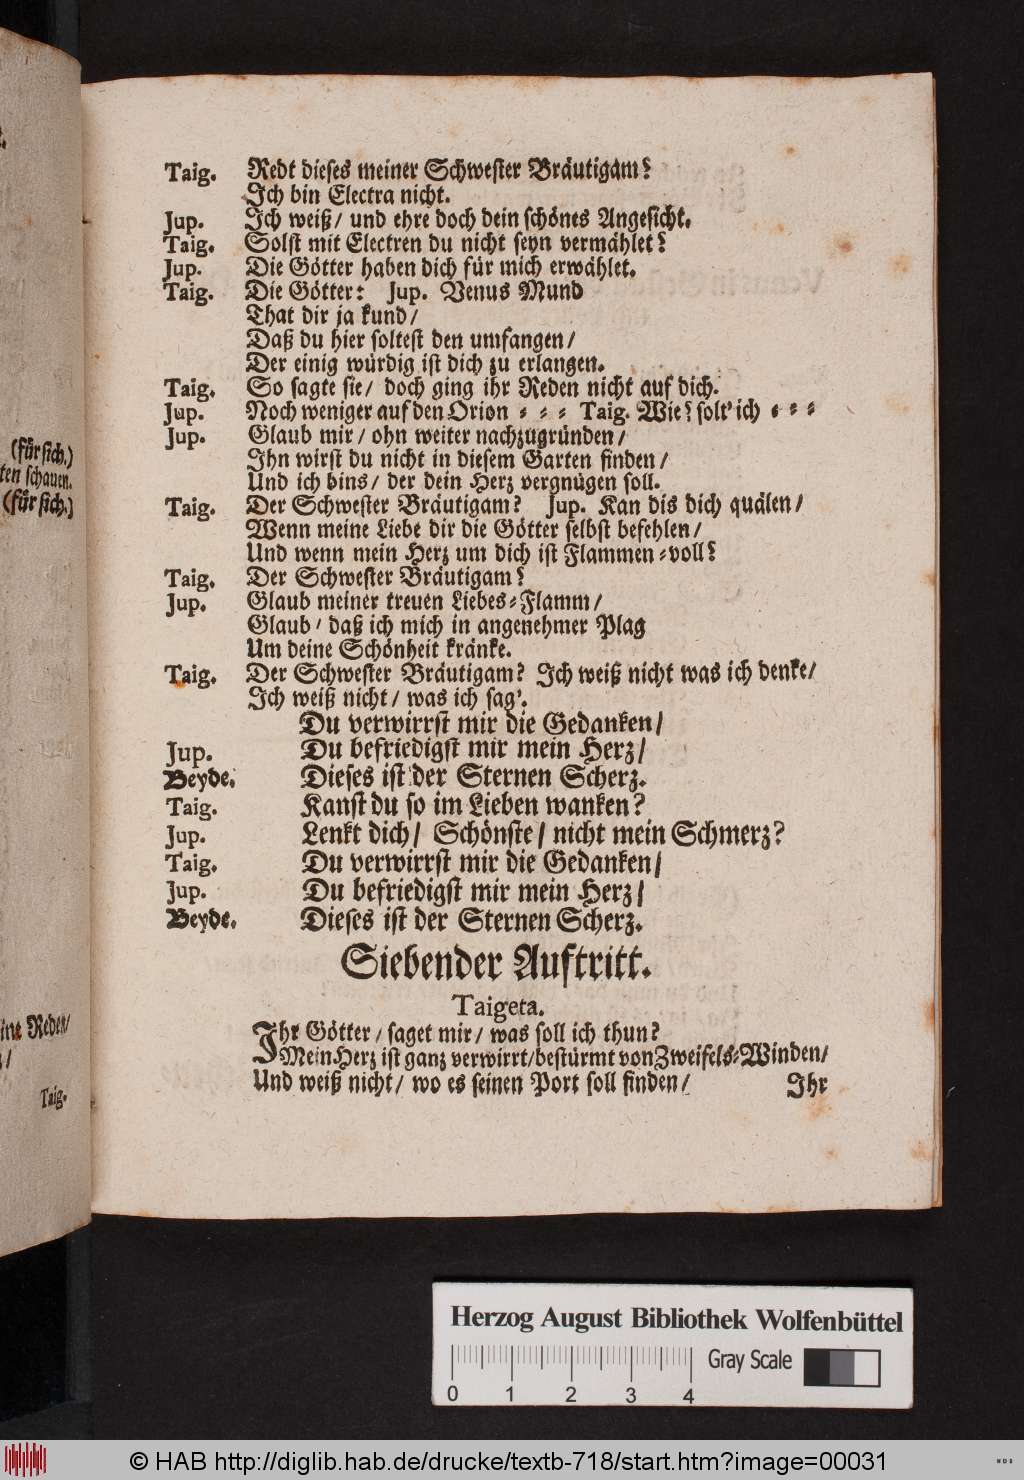 Taig. Redt dieses meiner Schwester Bräutigam?
Ich bin Electra nicht.
Jup. Ich weiß/ und ehre doch dein schönes Angesicht.
Taig. Solst mit Electren du nicht seyn vermählet?
Jup. Die Götter haben dich für mich erwählet.
Taig. Die Götter: Jup. Venus Mund
That dir ja kund/
Daß du hier soltest den umfangen/
Der einig würdig ist dich zu erlangen.
Taig. So sagte sie/ doch ging ihr Reden nicht auf dich.
Jup. Noch weniger auf den Orion = = = Taig. Wie? solt' ich = = =
Jup. Glaub mir/ ohn weiter nachzugründen/
Ihn wirst du nicht in diesem Garten finden/
Und ich bins/ der dein Herz vergnügen soll.
Taig. Der Schwester Bräutigam? Jup. Kan dis dich quälen/
Wenn meine Liebe dir die Götter selbst befehlen/
Und wenn mein Herz um dich ist Flammen=voll?
Taig. Der Schwester Bräutigam?
Jup. Glaub meiner treuen Liebes=Flamm/
Glaub/ daß ich mich in angenehmer Plag
Um deine Schönheit kränke.
Taig. Der Schwester Bräutigam? Ich weiß nicht was ich denke/
Ich weiß nicht/ was ich sag'.
Du verwirrst mir die Gedanken/
Jup. Du befriedigst mir mein Herz/
Beyde. Dieses ist der Sternen Scherz.
Taig. Kanst du so im Lieben wanken?
Jup. Lenkt dich/ Schönste/ nicht mein Schmerz?
Taig. Du verwirrst mir die Gedanken/
Jup. Du befriedigst mir mein Herz/
Beyde. Dieses ist der Sternen Scherz.
Siebender Auftritt.
Taigeta.
Ihr Götter/ saget mir/ was soll ich thun?
Mein Herz ist ganz verwirrt/ bestürmt von Zweifels=Winden/
Und weiß nicht/ wo es seinen Port soll finden/
Ihr
(für sich.)
ten schauen.
(für sich.)
ine Reden/
Taig.
Herzog August Bibliothek Wolfenbüttel
Gray Scale
0 1 2 3 4
© HAB http://diglib.hab.de/drucke/textb-718/start.htm?image=00031